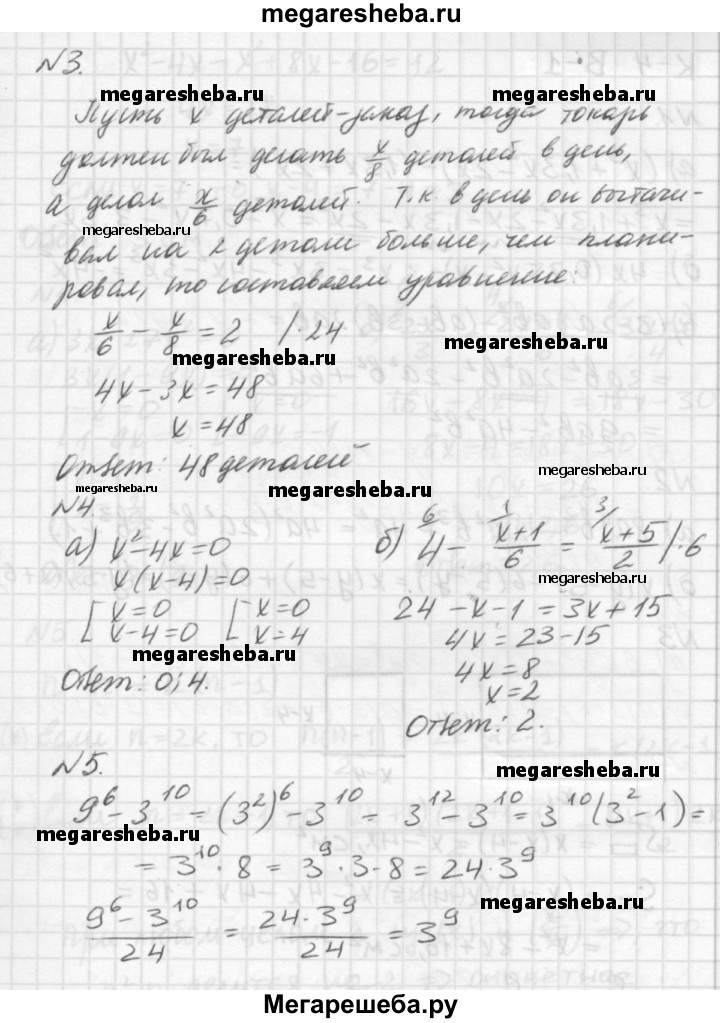 megaresheba.ru
№3.
megaresheba.ru megaresheba.ru
Пусть x деталей-заказ, тогда токарь
должен был делать x/8 деталей в день,
а делал x/6 деталей. Т.к. в день он вытачи-
megaresheba.ru
вал на 2 детали больше, чем плани-
ровал, то составляем уравнение:
x/6 - x/8 = 2 /·24
megaresheba.ru megaresheba.ru
4x-3x=48
x=48
Ответ: 48 деталей
megaresheba.ru megaresheba.ru megaresheba.ru
№4
а) x²-4x=0
x(x-4)=0
[x=0 [x=0
x-4=0 x=4
megaresheba.ru
Ответ: 0; 4.
б) 4 - (x+1)/6 = (x+5)/2 |·6
6 1 3/
megaresheba.ru
24-x-1=3x+15
4x=23-15
megaresheba.ru
4x=8
x=2
Ответ: 2.
№5.
megaresheba.ru
9⁶-3¹⁰=(3²)⁶-3¹⁰=3¹²-3¹⁰=3¹⁰(3²-1)=
megaresheba.ru megaresheba.ru
=3¹⁰·8=3⁹·3·8=24·3⁹
(9⁶-3¹⁰)/24 = (24·3⁹)/24 = 3⁹
megaresheba.ru megaresheba.ru
Мегарешеба.ру